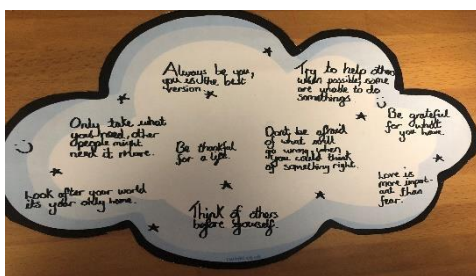 Always be you,
you is the best
version.
Try to help others
when possible, some
are unable to do
somethings
Only take what
you need, other
people might
need it more.
Be thankful
for a life.
Don't be afraid
of what will
go wrong, when
you could think
of something right.
Be grateful
for what
you have.
Look after your world
its your only home.
Think of others
before yourself.
Love is
more import-
ant than
fear.